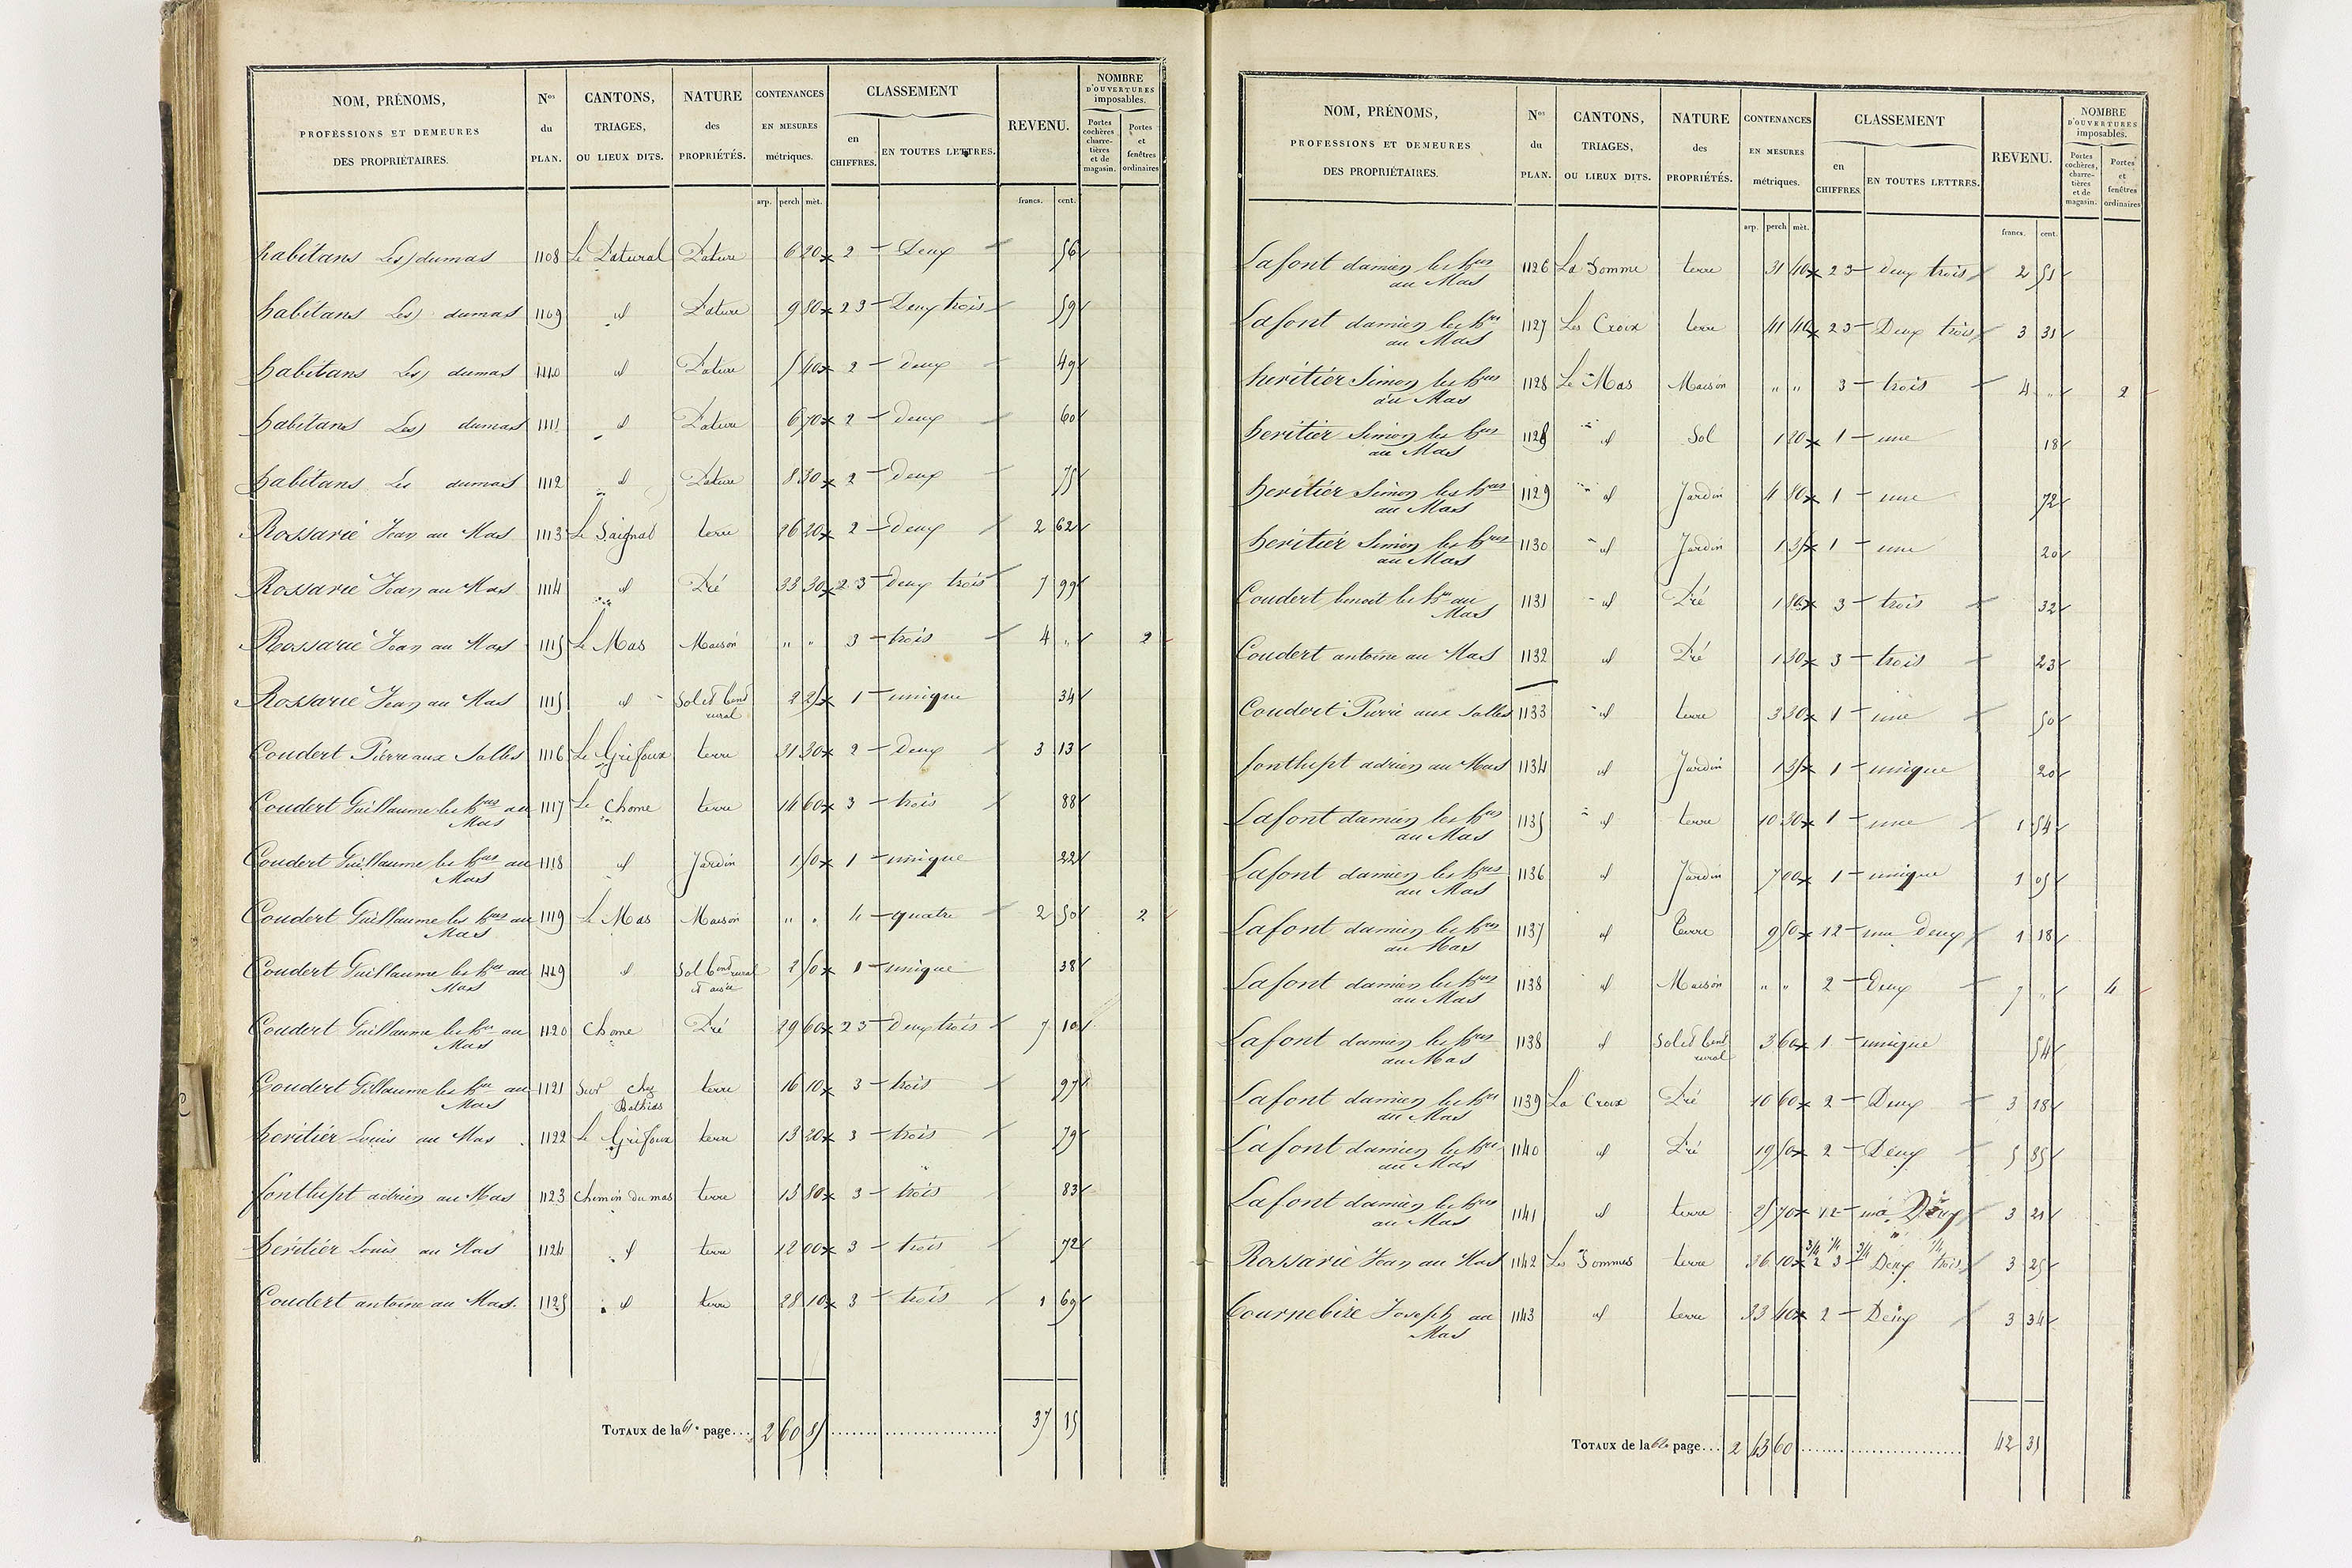 NOM, PRÉNOMS, PROFESSIONS ET DEMEURES DES PROPRIÉTAIRES.
Nos du PLAN.
CANTONS, TRIAGES, OU LIEUX DITS.
NATURE des PROPRIÉTÉS.
CONTENANCES EN MESURES métriques.
CLASSEMENT
en CHIFFRES.
EN TOUTES LETTRES.
REVENU.
NOMBRE D'OUVERTURES imposables.
Portes cochères, charretières et de magasin.
Portes et fenêtres ordinaires
arp. perch mèt. francs. cent.
habitans Les) dumas 1108 Le Patural Pature 6 20 2 Deux 56
habitans Les) dumas 1109 id Pature 9 80 2 3 Deux trois 59
habitans Les) dumas 1110 id Pature 5 40 2 deux 49
habitans Les) dumas 1111 id Pature 6 70 2 deux 60
habitans Les dumas 1112 id Pature 8 30 2 deux 75
Rossarie Jean au Mas 1113 Le Saignat terre 26 20 2 deux 2 62
Rossarie Jean au Mas 1114 id Pré 33 30 2 3 deux trois 7 99
Rossarie Jean au Mas 1115 Le Mas Maison " " 3 trois 4 " 2
Rossarie Jean au Mas 1115 id Sol et bend rural 2 25 1 unique 34
Coudert Pierre aux Salles 1116 Le Grifoux terre 31 30 2 Deux 3 13
Coudert Guillaume les hres au Mas 1117 Le Chome terre 14 60 3 trois 88
Coudert Guillaume les hres au Mas 1118 id Jardin 1 50 1 unique 22
Coudert Guillaume les hres au Mas 1119 Le Mas Maison " " 4 quatre 2 50 2
Coudert Guillaume les hres au Mas 1119 id Sol bend rural et aisée 2 50 1 unique 38
Coudert Guillaume les hres au Mas 1120 Chome Pré 29 60 2 3 Deux trois 7 10
Coudert Gillaume les hres au Mas 1121 Sur chez Bathias terre 16 10 3 trois 97
heritier Louis au Mas 1122 Le Grifoux terre 13 20 3 trois 79
fontlupt adrien au Mas 1123 Chemin du mas terre 13 80 3 trois 83
heritier Louis au Mas 1124 id terre 12 00 3 trois 72
Coudert antoine au Mas 1125 id terre 28 10 3 trois 1 69
TOTAUX de la 61e page... 2 60 85 37 15
NOM, PRÉNOMS, PROFESSIONS ET DEMEURES DES PROPRIÉTAIRES.
Nos du PLAN.
CANTONS, TRIAGES, OU LIEUX DITS.
NATURE des PROPRIÉTÉS.
CONTENANCES EN MESURES métriques.
CLASSEMENT
en CHIFFRES.
EN TOUTES LETTRES.
REVENU.
NOMBRE D'OUVERTURES imposables.
Portes cochères, charretières et de magasin.
Portes et fenêtres ordinaires
arp. perch mèt. francs. cent.
Lafont damien les hres au Mas 1126 La Somme terre 31 40 2 3 deux trois 2 51
Lafont damien les hres au Mas 1127 Les Croix terre 41 40 2 3 Deux trois 3 31
heritier Simon les hres au Mas 1128 Le Mas Maison " " 3 trois 4 " 2
heritier Simon les hres au Mas 1128 id Sol 1 20 1 une 18
heritier Simon les hres au Mas 1129 id Jardin 4 80 1 une 72
heritier Simon les hres au Mas 1130 id Jardin 1 35 1 une 20
Coudert benoit les hres au Mas 1131 id Pré 1 80 3 trois 32
Coudert antoine au Mas 1132 id Pré 1 30 3 trois 23
Coudert Pierre aux Salles 1133 id terre 3 30 1 une 50
fontlupt adrien au Mas 1134 id Jardin 1 35 1 unique 20
Lafont damien les hres au Mas 1135 id terre 10 30 1 une 1 54
Lafont damien les hres au Mas 1136 id Jardin 7 00 1 unique 1 05
Lafont damien les hres au Mas 1137 id Terre 9 50 1 2 une Deux 1 18
Lafont damien les hres au Mas 1138 id Maison " " 2 Deux 7 " 4
Lafont damien les hres au Mas 1138 id Sol et bend rural 3 60 1 unique 54
Lafont damien les hres au Mas 1139 La Croix Pré 10 60 2 Deux 3 18
Lafont damien les hres au Mas 1140 id Pré 19 50 2 Deux 5 85
Lafont damien les hres au Mas 1141 id terre 25 70 1 2 une Deux 3 21
Rossarie Jean au Mas 1142 Les Sommes terre 36 10 3/4 2 1/4 3 3/4 Deux 1/4 trois 3 25
Cournebize Joseph au Mas 1143 id terre 33 40 2 Deux 3 34
TOTAUX de la 62e page.... 2 43 60 42 31